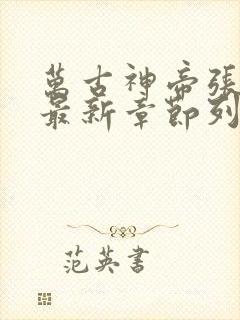 萬古神帝張
最新章節列
范英書